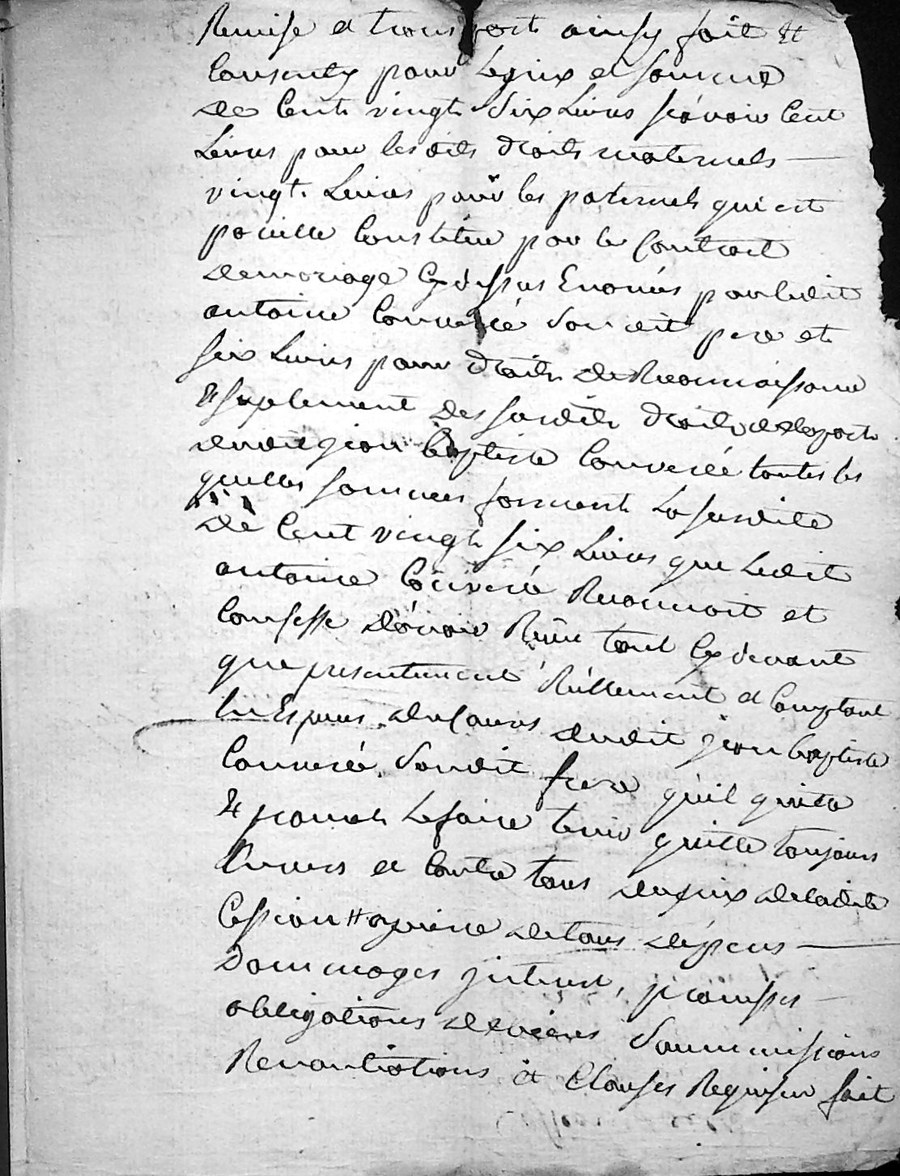 Remise et transport ainsy fait et
Consenty pour le prix et somme
de Cent vingt six Livres sçavoir Cent
Livres pour lesdits droits maternels
vingt Livres pour les paternels qui est
pareille Constituée par le Contract
de mariage cy dessus Enoncés par ledit
antoine son dit pere et
six Livres pour droits de Reconnoissance
et suplement des susdits droits de la part
dudit jean Baptiste toutes les
quelles sommes forment la susdite
de Cent vingt six Livres que Ledit
antoine Reconnoit et
Confesse d'avoir Reçue tant cy devant
que presentement Réellement et Comptant
En Especes de cours dudit jean baptiste
son dit frere qu'il quitte
et promet Le faire tenir quitte toujours
Envers et Contre tous du prix de ladite
Cession a peine de tous dépens
Dommages interets, promesses
obligations de biens Soummissions
Renontiations et Clauses Requises fait